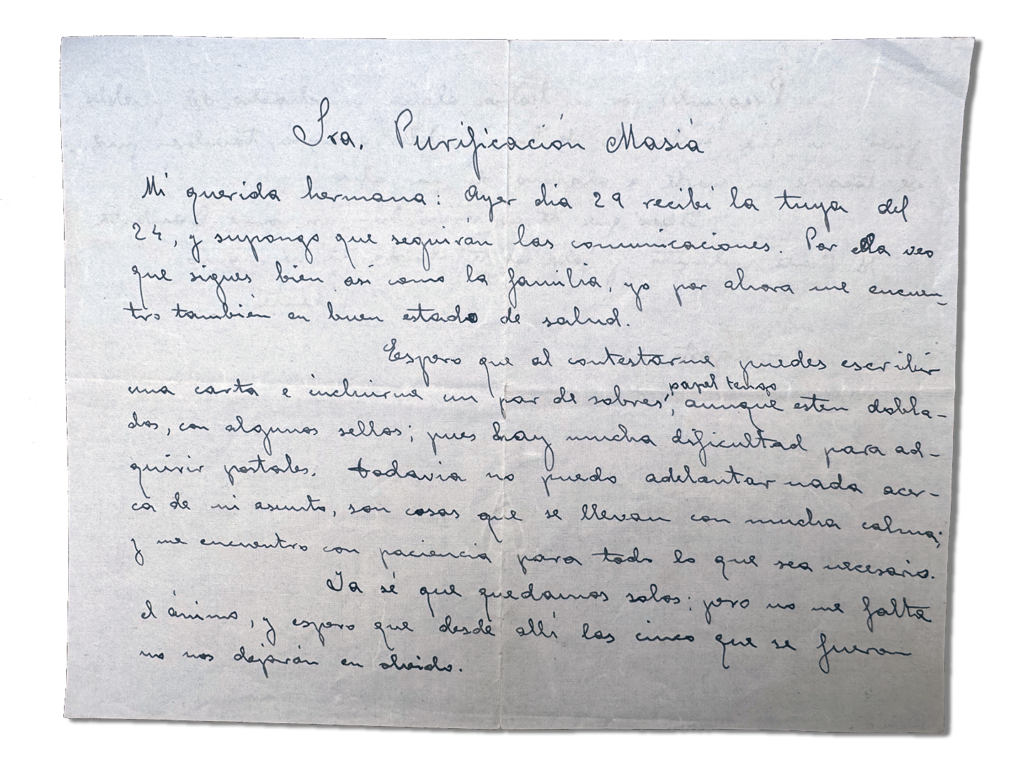 Sra. Purificación Masiá
Mi querida hermana: Ayer dia 29 recibi la tuya del
24, y supongo que seguirán las comunicaciones. Por ella veo
que sigues bien así como la familia, yo por ahora me encuen-
tro también en buen estado de salud.
Espero que al contestarme puedes escribir
papel tengo
una carta e incluirme un par de sobres, aunque esten dobla-
dos, con algunos sellos; pues hay mucha dificultad para ad-
quirir postales. todavia no puedo adelantar nada acer-
ca de mi asunto, son cosas que se llevan con mucha calma;
y me encuentro con paciencia para todo lo que sea necesario.
Ya sé que quedamos solos; pero no me falta
el ánimo, y espero que desde allí los cinco que se fueron
no nos dejarán en olvido.